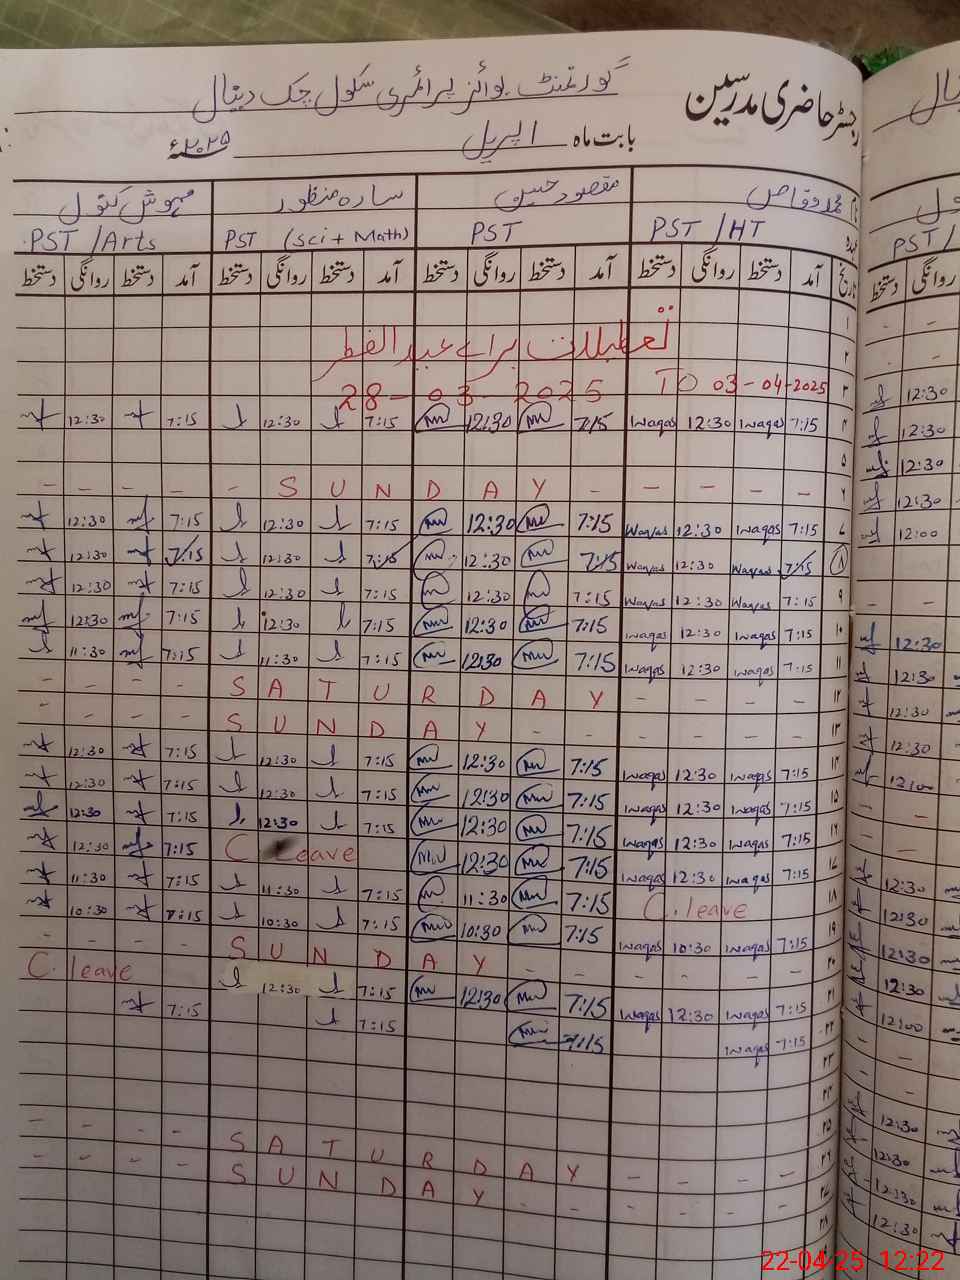 رجسٹر حاضری مدرسین گورنمنٹ بوائز پرائمری سکول چک دیتال
بابت ماہ اپریل ۲۰۲۵ء
نام محمد وقاص مقصود حسین سارہ منظور مہوش کنول
عہدہ PST / HT PST PST (Sci + Math) PST / Arts
تاریخ آمد دستخط روانگی دستخط آمد دستخط روانگی دستخط آمد دستخط روانگی دستخط آمد دستخط روانگی دستخط
۱
۲ تعطیلات برائے عید الفطر
۳ 28-03-2025 TO 03-04-2025
۴ 7:15 waqas 12:30 waqas 7:15 12:30 7:15 12:30 7:15 12:30
۵
۶ - - - - - S U N D A Y - - - - -
۷ 7:15 waqas 12:30 Waqas 7:15 12:30 7:15 12:30 7:15 12:30
۸ 7:15 Waqas 12:30 Waqas 7:15 12:30 7:15 12:30 7:15 12:30
۹ 7:15 Waqas 12:30 Waqas 7:15 12:30 7:15 12:30 7:15 12:30
۱۰ 7:15 waqas 12:30 waqas 7:15 12:30 7:15 12:30 7:15 12:30
۱۱ 7:15 waqas 12:30 waqas 7:15 12:30 7:15 11:30 7:15 11:30
۱۲ - - - - S A T U R D A Y - - - -
۱۳ - - - - S U N D A Y - - - - - -
۱۴ 7:15 waqas 12:30 waqas 7:15 12:30 7:15 12:30 7:15 12:30
۱۵ 7:15 waqas 12:30 waqas 7:15 12:30 7:15 12:30 7:15 12:30
۱۶ 7:15 waqas 12:30 waqas 7:15 12:30 7:15 12:30 7:15 12:30
۱۷ 7:15 waqas 12:30 waqas 7:15 12:30 C Leave 7:15 12:30
۱۸ C. leave 7:15 11:30 7:15 11:30 7:15 11:30
۱۹ 7:15 waqas 10:30 waqas 7:15 10:30 7:15 10:30 7:15 10:30
۲۰ - - - - S U N D A Y - - - - - -
۲۱ 7:15 waqas 12:30 waqas 7:15 12:30 7:15 12:30 C. leave
۲۲ 7:15 waqas 7:15 7:15 7:15
۲۳
۲۴
۲۵
۲۶ - - - - S A T U R D A Y - - - -
۲۷ - - - - S U N D A Y - - - - - -
۲۸
PST /
روانگی دستخط
12:30
12:30
12:30
12:30
12:00
12:30
12:30
12:30
12:30
12:00
12:30
12:30
12:30
12:30
12:00
12:30
12:30
12:30
12:30
22-04-25 12:22